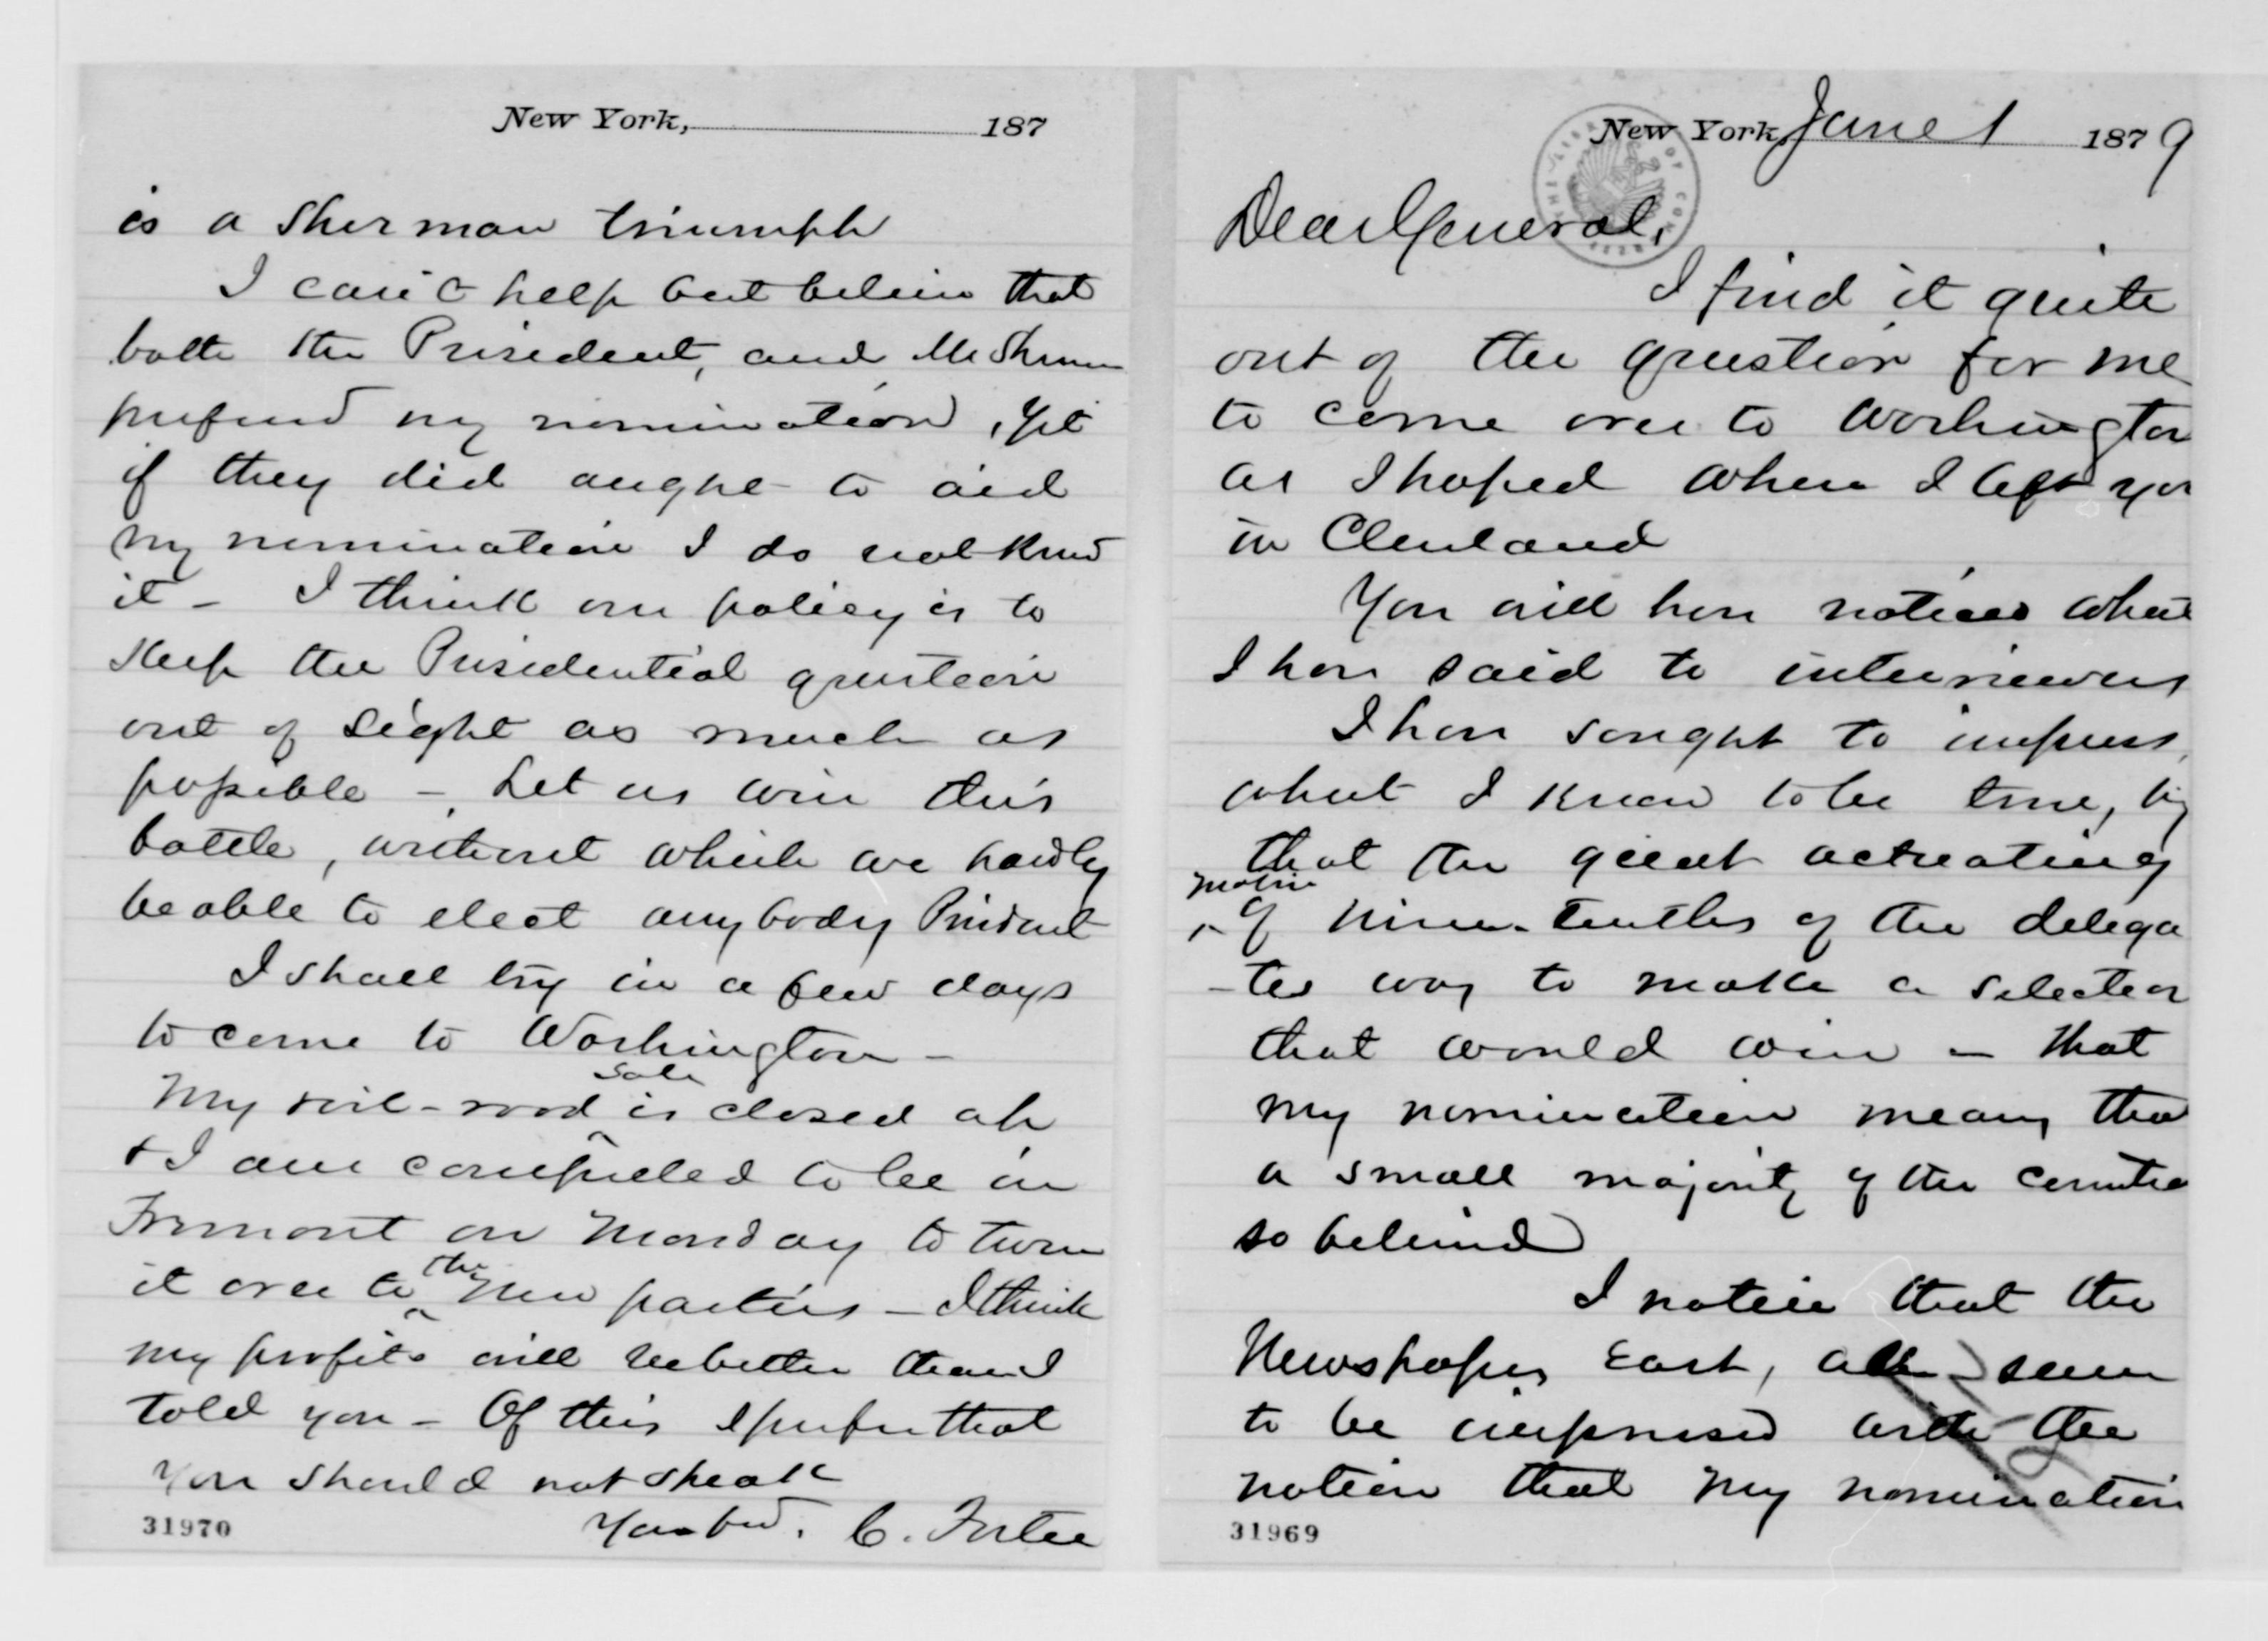 New York, June 1 1879
Dear General,
I find it quite
out of the question for me
to come over to Washington
as I hoped when I left you
in Cleveland
You will have notices what
I have said to interviewers
I have sought to impress,
what I know to be true, viz
that the great actuating
motive
^ of nine-tenths of the delega
-tes was to make a selection
that would win - that
my nomination means that
a small majority of the counties
so believed
I notice that the
Newspapers East, all seem
to be impressed with the
notion that my nomination
31969
New York, 187
is a Sherman triumph
I can't help but believe that
both the President, and Mr Sherman
prefered my nomination, Yet
if they did aught to aid
my nomination I do not know
it - I think our policy is to
keep the Presidential question
out of sight as much as
possible - Let us win this
battle, without which we hardly
be able to elect anybody President
I shall try in a few days
to come to Washington -
sale
My rail-road ^ is closed up
& I am compelled to be in
Fremont on Monday to turn
it over to ^the new parties - I think
my profits will be better than I
told you - Of this I prefer that
you should not speak
C. Foster
31970